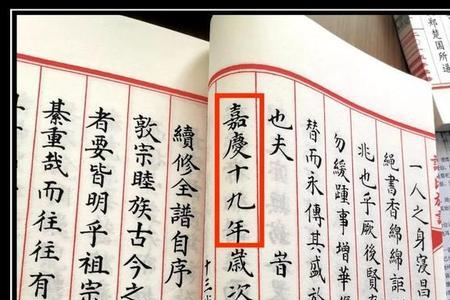 一人之身寖昌
絕書香綿綿詎
兆也乎厥後賢
勿緩踵事增華
替而永傳其盛於
也夫 旹
嘉慶十九年歲次
十三
續修全譜自序
敦宗睦族古今之
者要皆明乎祖宗
綦重哉而往往有